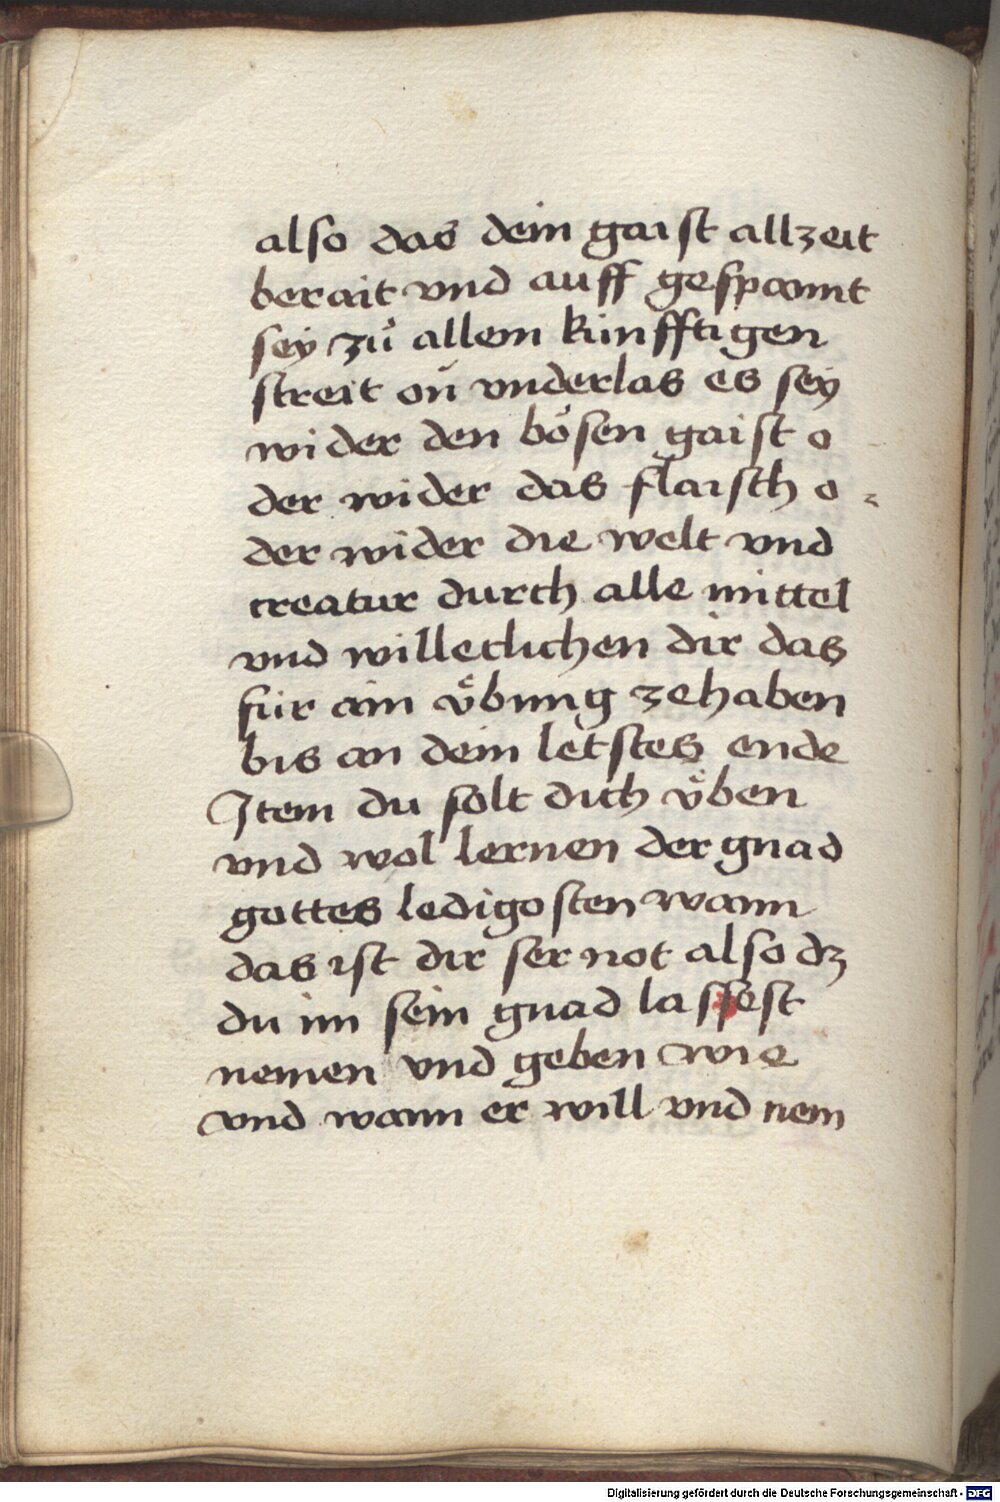 also das dein gaist allzeit
berait vnd auff gespannt
sey zů allem künfftigen
streit on vnderlas es sey
wider den bösen gaist o
der wider das flaisch o
der wider die welt vnd
creatur durch alle mittel
vnd willeclichen dir das
für ain vͤbung zehaben
bis an dein letstes ende
Item du solt dich vͤben
vnd wol lernen der gnad
gottes ledigosten wann
das ist dir ser not also dz
du im sein gnad lassest
nemen vnd geben wie
vnd wann er will vnd nem
Digitalisierung gefördert durch die Deutsche Forschungsgemeinschaft - DFG